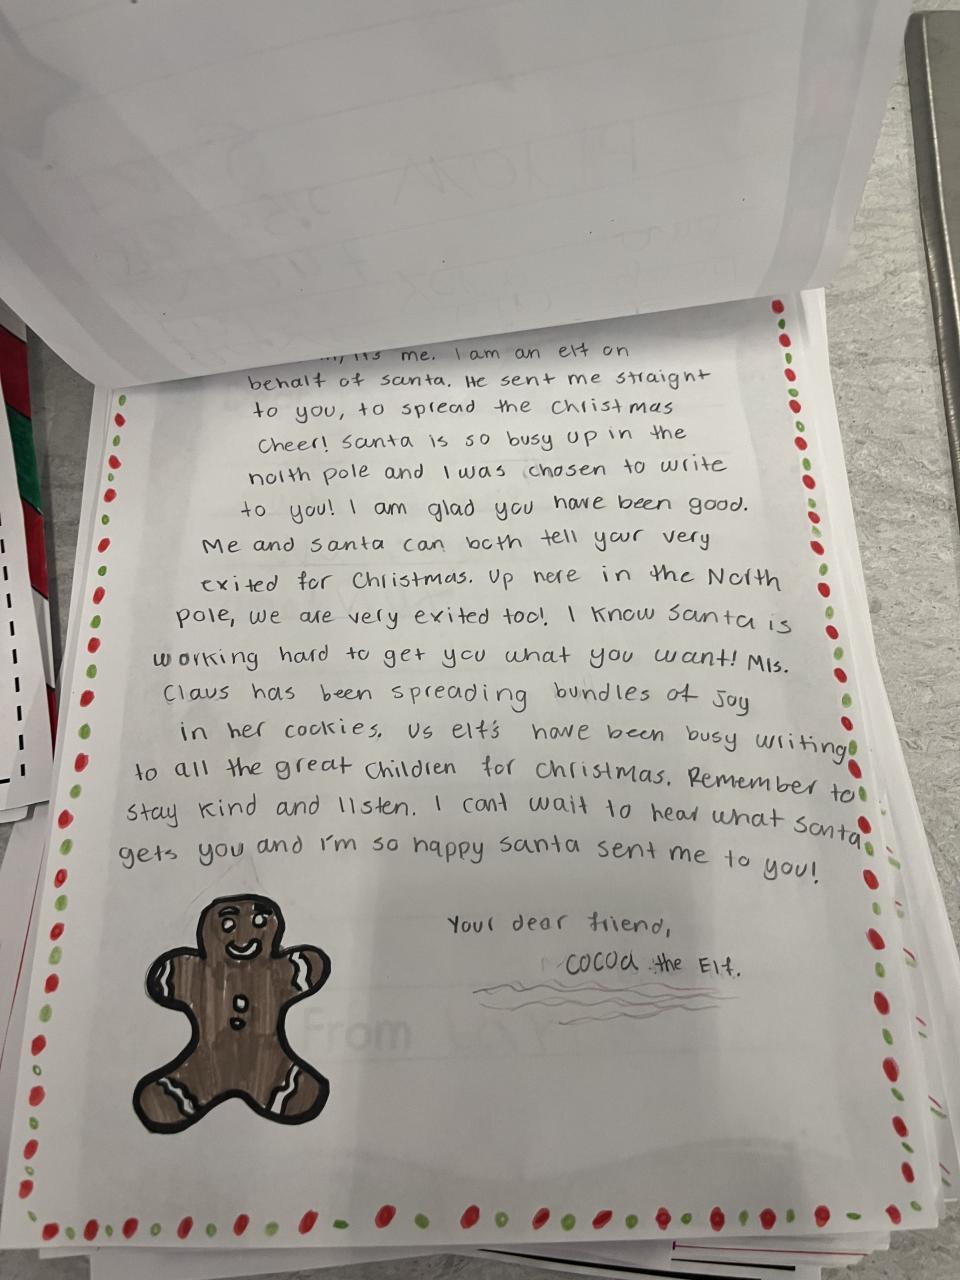 its me. I am an elf on
behalf of santa. He sent me straight
to you, to spread the christmas
cheer! santa is so busy up in the
north pole and I was chosen to write
to you! I am glad you have been good.
Me and santa can both tell your very
exited for Christmas. Up here in the North
pole, we are very exited too! I know santa is
working hard to get you what you want! Mrs.
Claus has been spreading bundles of joy
in her cookies. Us elf's have been busy writing
to all the great children for christmas. Remember to
stay kind and listen. I cant wait to hear what santa
gets you and i'm so happy santa sent me to you!
Your dear friend,
cocoa the Elf.
From